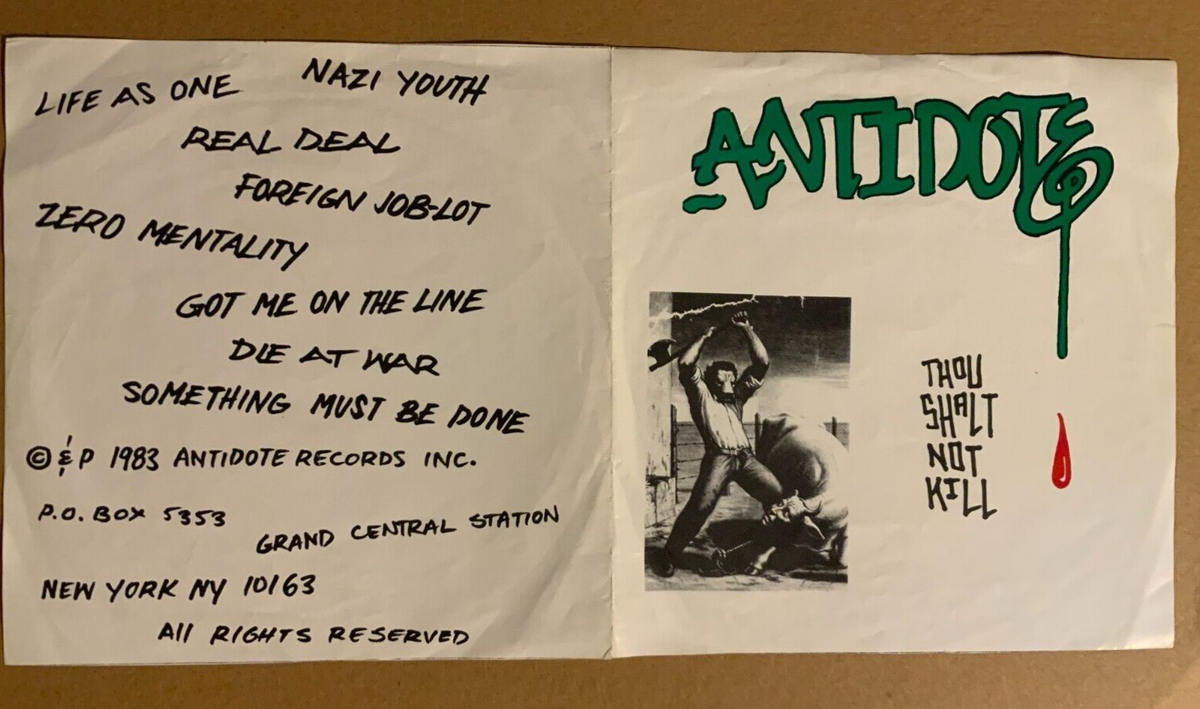 LIFE AS ONE
NAZI YOUTH
REAL DEAL
FOREIGN JOB-LOT
ZERO MENTALITY
GOT ME ON THE LINE
DIE AT WAR
SOMETHING MUST BE DONE
© & P 1983 ANTIDOTE RECORDS INC.
P.O. BOX 5353
GRAND CENTRAL STATION
NEW YORK NY 10163
All RIGHTS RESERVED
ANTIDOTE
THOU
SHALT
NOT
KILL